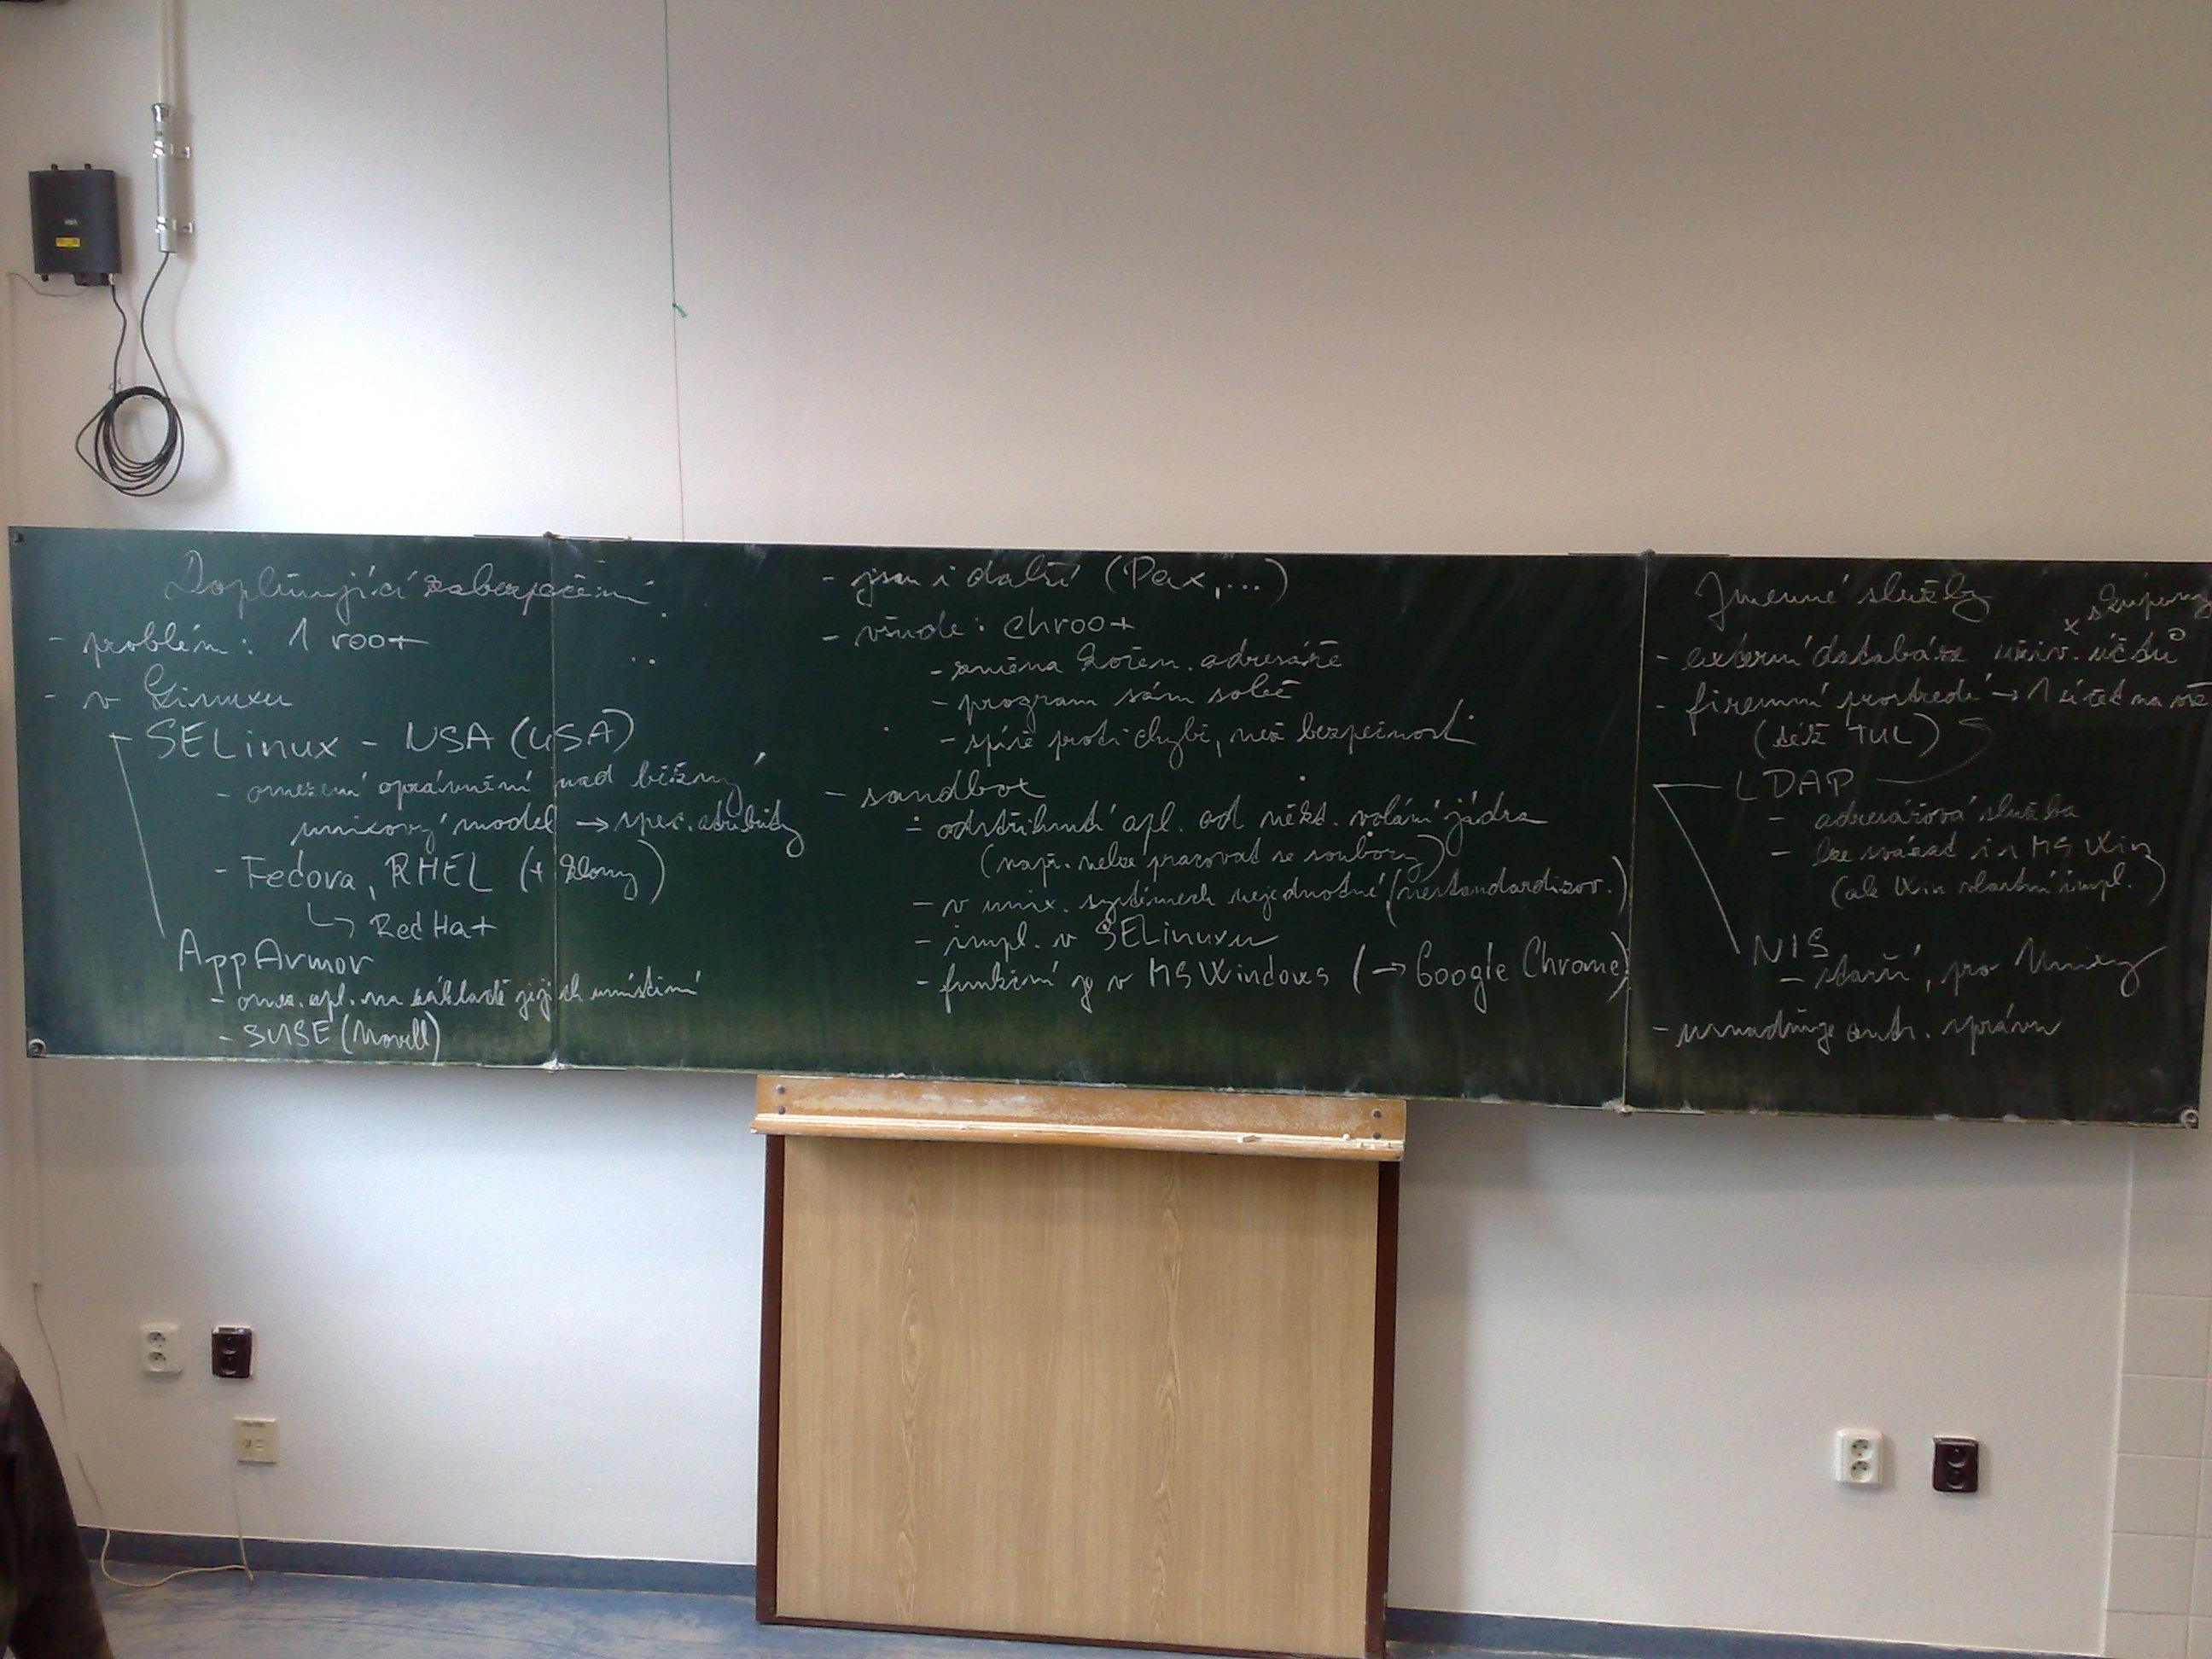 Doplňující zabezpečení
- problém: 1 root
- v Linuxu
SELinux - NSA (USA)
- omezení oprávnění nad běžný
unixový model → spec. atributy
- Fedora, RHEL (+ klony)
↳ Red Hat
AppArmor
- omez. apl. na základě jejich umístění
- SUSE (Novell)
- jsou i další (Pax,...)
- všude: chroot
- změna kořen. adresáře
- program sám sobě
- spíše proti chybě, než bezpečnost
- sandbox
- odstřihnutí apl. od někt. volání jádra
(např. nelze pracovat se soubory)
- v unix. systémech nejednotné (nestandardizov.)
- impl. v SELinuxu
- funkční je v MS Windows (→ Google Chrome)
Jmenné služby
x skupiny
- externí databáze uživ. účtů
- firemní prostředí → 1 účet na vše
(též TUL)
LDAP
- adresářová služba
- lze svázat i s MS Win
(ale Win vlastní impl.)
NIS
- starší, pro Unixy
- usnadňuje centr. správu